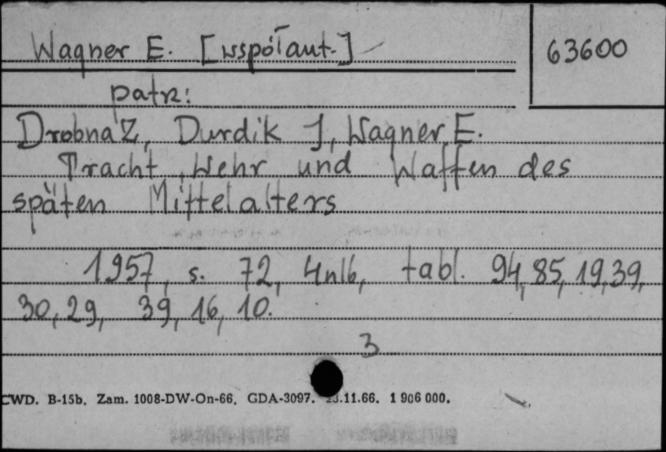 Wagner E. [współaut.]
63600
patrz:
Drobna Z, Durdik J, Wagner E.
Tracht, Wehr und Waffen des
späten Mittelalters
1957, s. 72, 4nlb, tabl. 94, 85, 19, 39,
30, 29, 39, 16, 10.
3
CWD. B-15b. Zam. 1008-DW-On-66. GDA-3097. .11.66. 1 906 000.